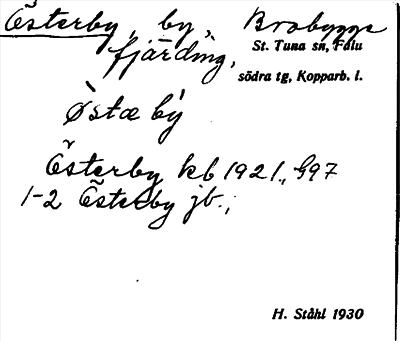 Österby, by, Brobygge
fjärding, St. Tuna sn, Falu
södra tg, Kopparb. l.
Østæ by̍
Österby kb 1921, §97
1-2 Österby jb.;
H. Ståhl 1930